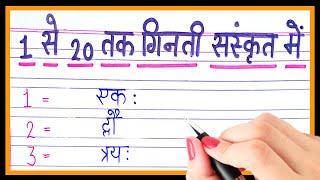 1 से 20 तक गिनती संस्कृत में
1 = एकः
2 = द्वौ
3 = त्रयः